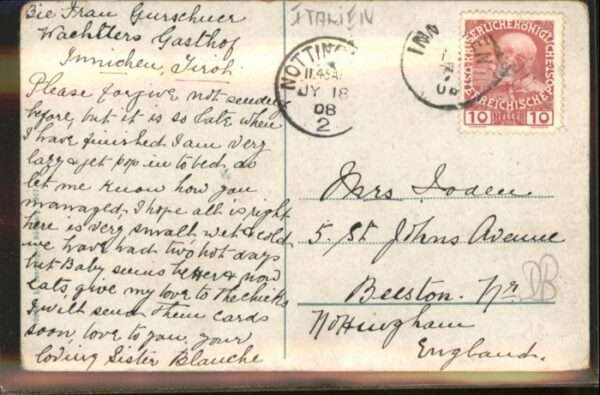 bie Frau Gurschner
Wachtlers Gasthof
Innichen, Tirol.
Please forgive not sending
before, but it is so late when
I have finished I am very
lazy & jet pop in to bed, do
let me know how you
managed, I hope all is right
here is very small wet & cold
we have had two hot days
but Baby seems better & now
eats, give my love to the chicks
I will send them cards
soon love to you, your
loving Sister Blanche
ITALIEN
NOTTING
11.45A
JY 18
08
2
INN
08
10 10
Mrs
5. St Johns Avenue
Beeston. Nr
Nottingham
England.
DB